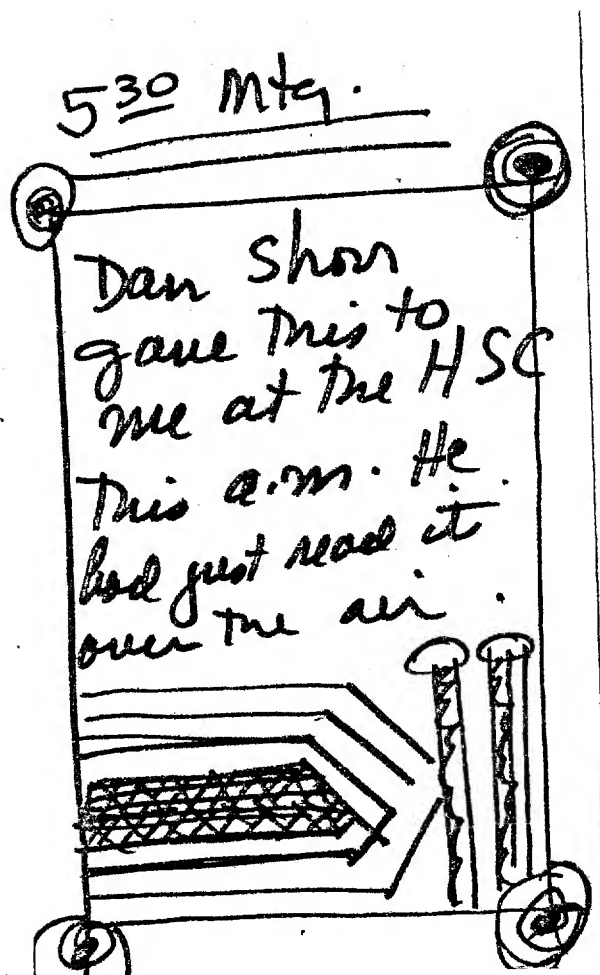 5 30 Mtg.
Dan Shorr
gave this to
me at the HSC
this a.m. He
had just read it
over the air.